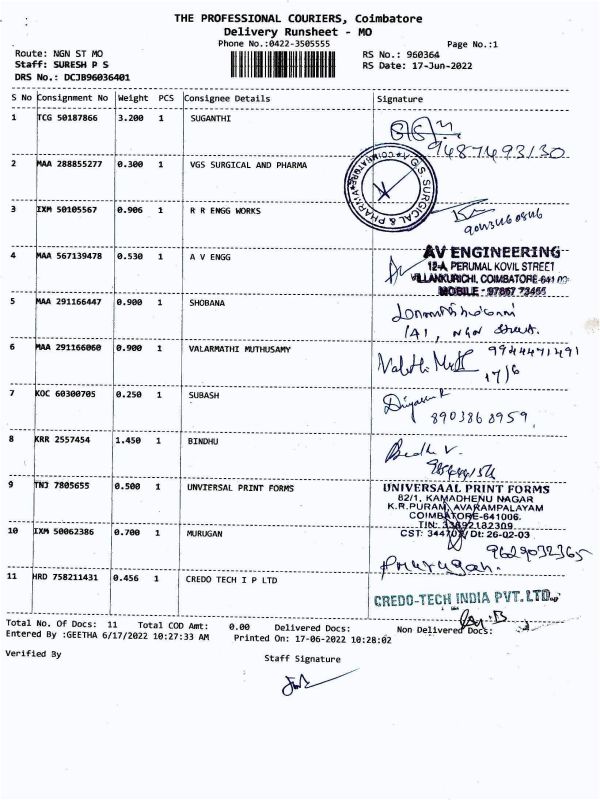 THE PROFESSIONAL COURIERS, Coimbatore
Delivery Runsheet - MO
Phone No.:0422-3505555
Page No.:1
Route: NGN ST MO
RS No.: 960364
Staff: SURESH P S
RS Date: 17-Jun-2022
DRS No.: DCJB96036401
S No Consignment No Weight PCS Consignee Details Signature
1 TCG 50187866 3.200 1 SUGANTHI
9487493130
2 MAA 288855277 0.300 1 VGS SURGICAL AND PHARMA
V.G.S. SURGICAL & PHARMA COIMBATORE
3 IXM 50105567 0.906 1 R R ENGG WORKS
4 MAA 567139478 0.530 1 A V ENGG
AV ENGINEERING
12-A, PERUMAL KOVIL STREET
VILLANKURICHI, COIMBATORE-641
MOBILE - 97867 73455
5 MAA 291166447 0.900 1 SHOBANA
141, NGN Street.
6 MAA 291166060 0.900 1 VALARMATHI MUTHUSAMY
9944471491
17/6
7 KOC 60300705 0.250 1 SUBASH
8903868959
8 KRR 2557454 1.450 1 BINDHU
Bindhu V.
9 TNJ 7805655 0.500 1 UNVIERSAL PRINT FORMS
UNIVERSAAL PRINT FORMS
82/1, KAMADHENU NAGAR
K.R.PURAM, AVARAMPALAYAM
COIMBATORE-641006.
TIN: 33692182309
CST: 344707/ Dt: 26-02-03
10 IXM 50062386 0.700 1 MURUGAN
9629032365
Murugan.
11 HRD 758211431 0.456 1 CREDO TECH I P LTD
CREDO-TECH INDIA PVT. LTD.,
Total No. Of Docs: 11 Total COD Amt: 0.00 Delivered Docs: Non Delivered Docs:
Entered By :GEETHA 6/17/2022 10:27:33 AM Printed On: 17-06-2022 10:28:02
Verified By
Staff Signature